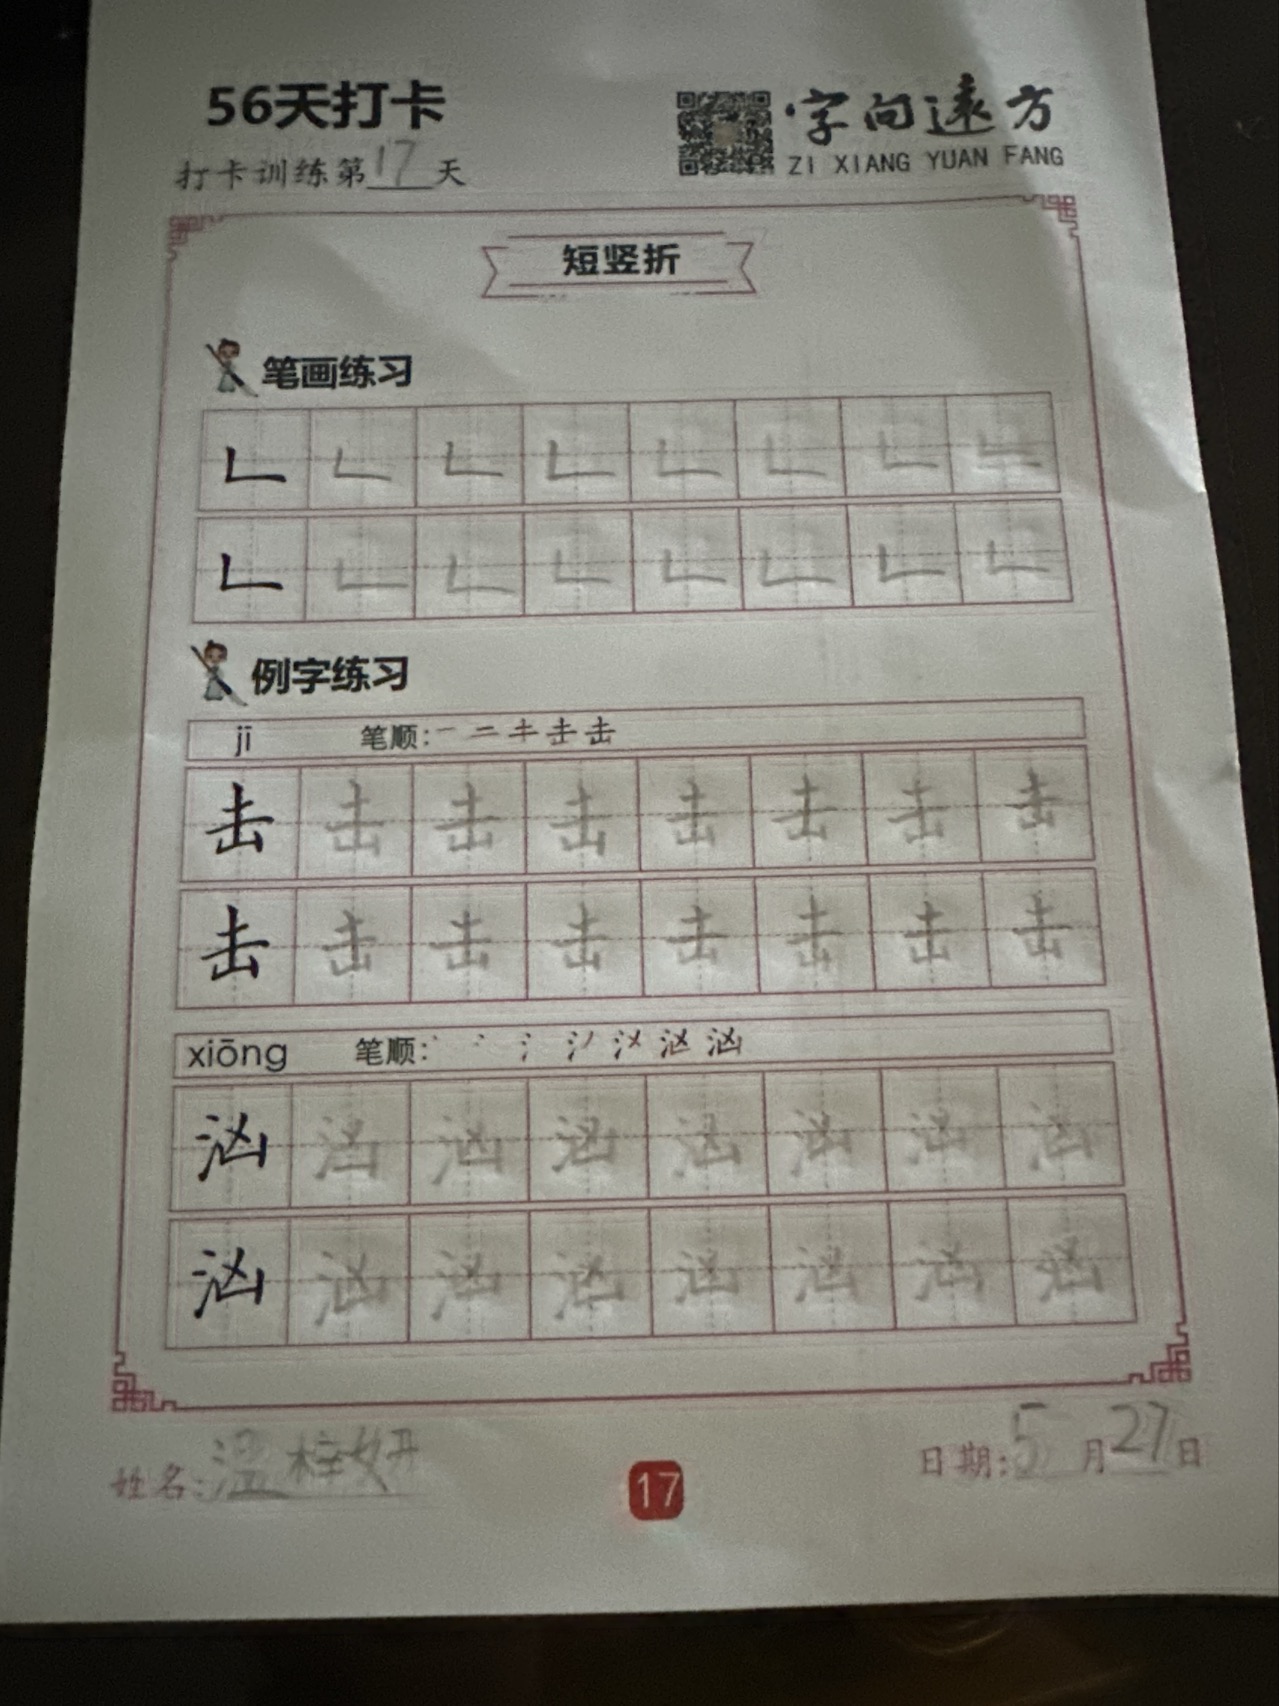 56天打卡
字向遠方
ZI XIANG YUAN FANG
打卡训练第17天
短竖折
笔画练习
𠃊 𠃊 𠃊 𠃊 𠃊 𠃊 𠃊 𠃊
𠃊 𠃊 𠃊 𠃊 𠃊 𠃊 𠃊 𠃊
例字练习
jī 笔顺: 一 二 キ 击 击
击 击 击 击 击 击 击 击
击 击 击 击 击 击 击 击
xiōng 笔顺: 汹
汹 汹 汹 汹 汹 汹 汹 汹
汹 汹 汹 汹 汹 汹 汹 汹
姓名:温梓妍
17
日期:5月27日